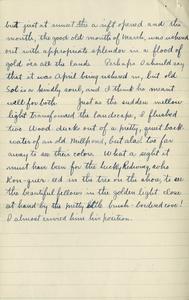 but just at sunset the a rift opened and the
month, the good old month of March, was ushered
out with appropriate splendor in a flood of
gold o'er all the lands. Perhaps I should say
that it was April being ushered in, but old
Sol is a kindly soul, and I think he meant
well for both. Just as the sudden mellow
light transformed the landscape, I flushed
two Wood ducks out of a pretty, quiet back
water of an old Millpond, but alas! too far
away to see their colors. What a sight it
must have been for the lucky Redwing, who
Kon-quer-eed in the tree on the shore, to see
the beautiful fellows in the golden light close
at hand by the pretty little brush-bordered cove!
I almost envied him his position.